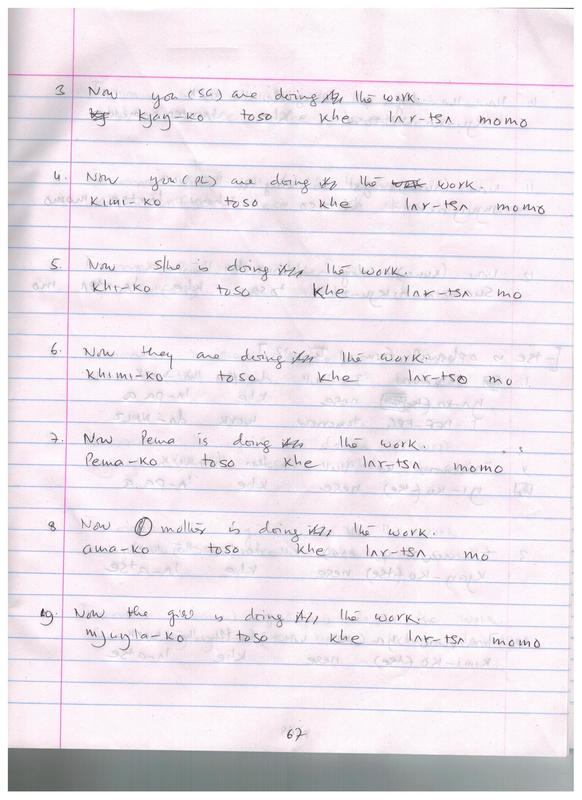 3 Now you (SG) are doing the work.
kjaŋ-ko toso khe lʌr-tsʌ momo
4. Now you (PL) are doing the work.
kimi-ko toso khe lʌr-tsʌ momo
5. Now s/he is doing the work.
khi-ko toso khe lʌr-tsʌ mo
6. Now they are doing the work.
khimi-ko toso khe lʌr-tsʌ mo
7. Now Pema is doing the work.
Pema-ko toso khe lʌr-tsʌ momo
8 Now mother is doing the work.
ama-ko toso khe lʌr-tsʌ mo
9. Now the girl is doing the work.
toso khe lʌr-tsʌ momo
67